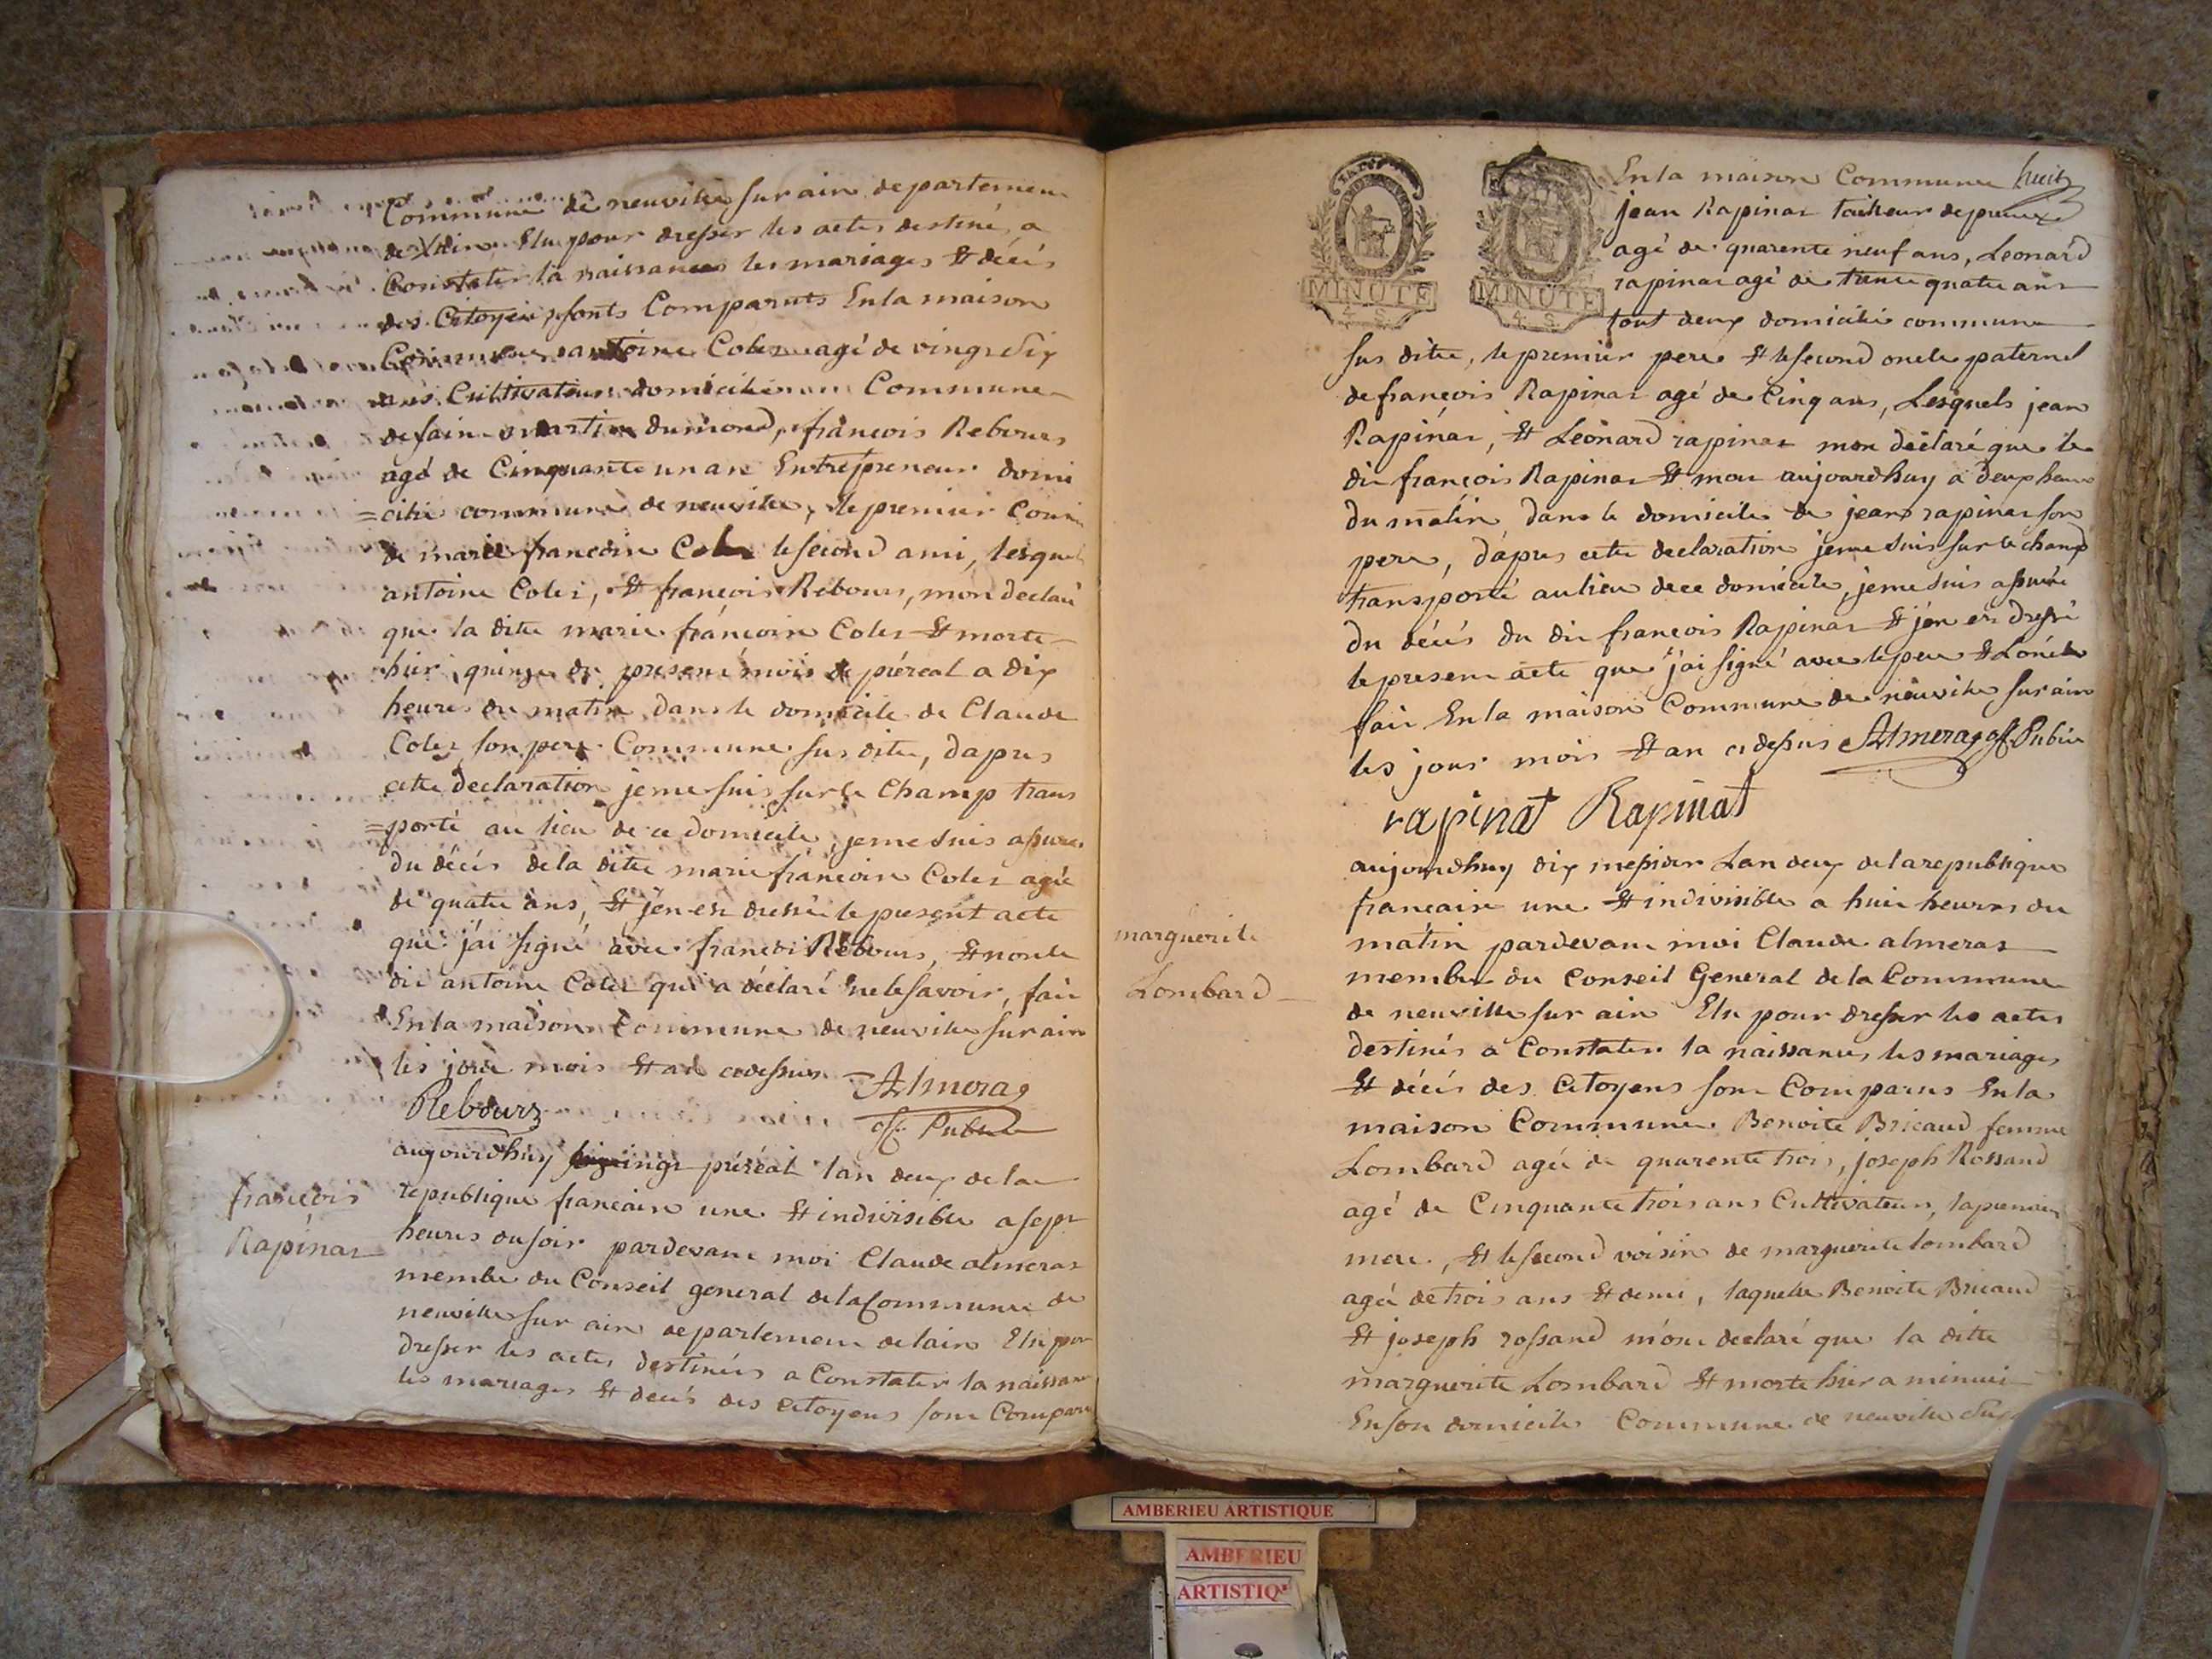 Commune de neuville sur ain departemen
de l'ain Elu pour dresser les actes destinés a
Constater la naissances les mariages Et décés
des Citoyens, sonts Comparuts En la maison
Commune antoine Colet agé de vingt six
ans Cultivateur domicilié Commune
de sain martin dumond, françois Rebours
agé de Cinquante un an Entrepreneur domi
=cilié commune de neuville, le premier Cousin
de marie françoise le second ami, lesquels
antoine Colet, Et françois Rebours, mon declaré
que la dite marie françoise Colet Et morte
hier quinze du present mois de préreal a dix
heures du matin dans le domicile de Claude
Colet son pere Commune sus ditte, dapres
cette declaration je me suis sur le Champ trans
=porté au lieu de ce domicile, je me suis assuré
du décés de la ditte marie françoise Colet agée
de quatre ans, Et j'en ei dressé le present acte
que j'ai signé avec françoi Rebours, Et non le
dit antoine Colet qui a déclaré ne le savoir, fait
En la maison Commune de neuville sur ain
les jour mois Et an ci dessus Almeras
Rebours off. Public
françois
Rapinat
aujourdhuy vingt préréal lan deux de la
republique française une Et indivisible a sept
heures du soir pardevant moi Claude almeras
membre du Conseil general de la Commune de
neuville sur ain departemen de lain Elu pour
dresser les actes destinées a Constater la naissance
les mariages Et decés des Citoyens sont Comparu
huit
En la maison Commune
jean Rapinat tailleur de pierre
agé de quarente neuf ans, Leonard
rapinat agé de trente quatre ans
tout deux domicilié commune
MINUTE
4. S.
MINUTE
4. S.
sus ditte, le premier pere Et le second oncle paternel
de françois Rapinat agé de Cinq ans, Lesquels jean
Rapinat, Et Leonard rapinat mon déclaré que le
dit françois Rapinat Et mort aujourdhuy a deux heures
du matin dans le domicile de jean rapinat son
pere, d'apres cette declaration je me suis sur le champ
transporté au lieu de ce domicile, je me suis assuré
du décés du dit françois Rapinat Et j'en ei dressé
le present acte que j'ai signé avec le pere Et Loncle
fait En la maison Commune de neuville sur ain
les jour mois Et an ci dessus Almeras off. Public
rapinat Rapinat
marguerite
Lombard
aujourdhuy dix messidor Lan deux de la republique
française une Et indivisible a huit heures du
matin pardevant moi Claude almeras
membre du Conseil General de la Commune
de neuville sur ain Elu pour dresser les actes
destinés a Constater la naissances les mariages
Et décés des Citoyens sont Comparus En la
maison Commune. Benoite Bricaud femme
Lombard agée de quarente trois, joseph Rossand
agé de Cinquante trois ans Cultivateur, la premiere
mere, Et le second voisin de marguerite lombard
agée de trois ans Et demi, laquelle Benoite Bricaud
Et joseph rossand m'ont declaré que la ditte
marguerite Lombard Et morte hier a minuit
En son domicile Commune de neuville
AMBERIEU ARTISTIQUE
AMBERIEU
ARTISTIQ